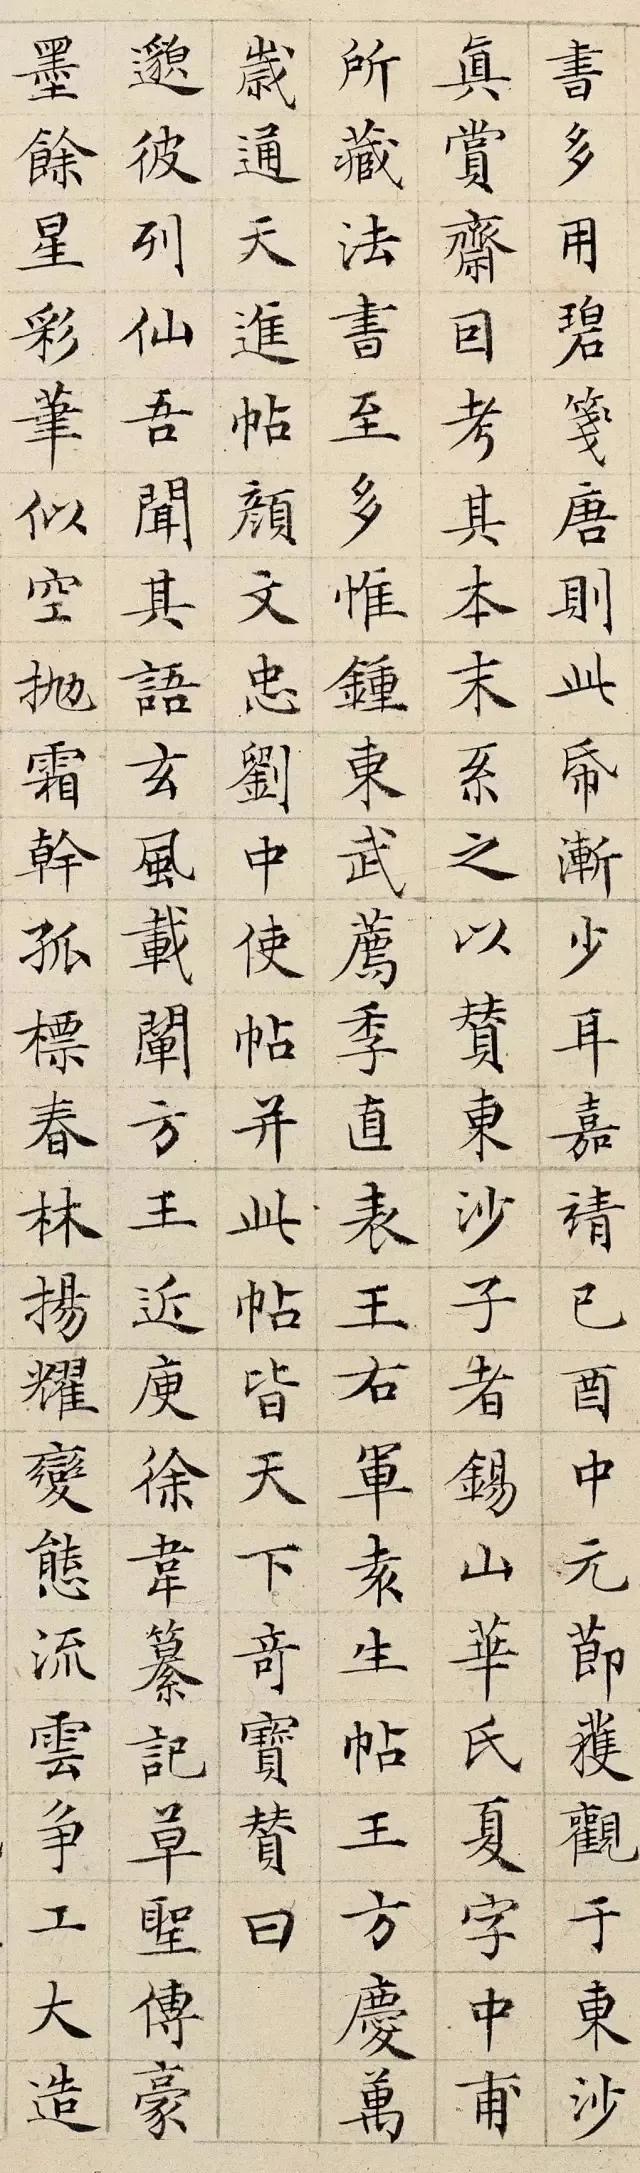 書多用碧箋唐則此帋漸少耳嘉靖己酉中元節獲觀于東沙
眞賞齋因考其本末系之以贊東沙子者錫山華氏夏字中甫
所藏法書至多惟鍾東武薦季直表王右軍袁生帖王方慶萬
歲通天進帖顏文忠劉中使帖并此帖皆天下奇寶贊曰
邈彼列仙吾聞其語玄風載闡方王近庾徐韋纂記草聖傳豪
墨餘星彩筆似空拋霜幹孤標春林揚耀變態流雲爭工大造